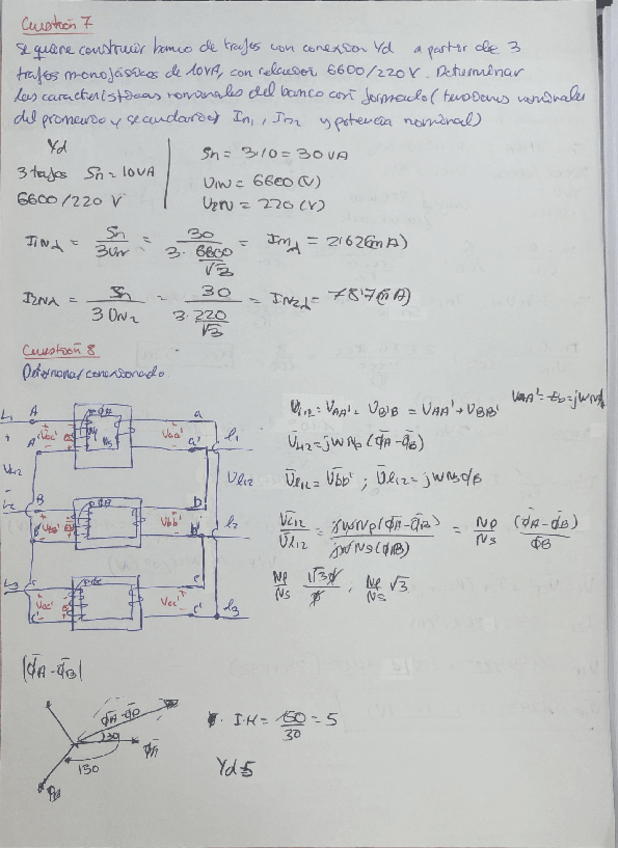 Cuestión 7
Se quiere construir banco de trafos con conexion Yd a partir de 3
trafos monofásicos de 10VA, con relacion 6600/220V. Determinar
las características nominales del banco así formado (tensiones nominales
del primario y secundario, In1, In2 y potencia nominal)
Yd
3 trafos Sn = 10VA
6600/220 V
Sn = 3·10 = 30VA
U1N = 6600 (V)
U2N = 220 (V)
I1Nλ = Sn/3U1N = 30/(3·6600/√3) = In1λ = 2'62(mA)
I2Nλ = Sn/3UN2 = 30/(3·220/√3) = IN2λ = 78'7(mA)
Cuestión 8
Determinar conexionado.
L1 A a
+ A' Vaa' a' l1
VL12 Ul12
L2 B b
B' Vbb' b' l2
L3 C c
C' Vcc' c' l3
UL12 = UAA' - UB'B = UAA' + UBB'
UL12 = jwNp(ΦA-ΦB)
Ul12 = Ubb' ; Ul12 = jwNsΦB
UL12/Ul12 = jwNp(ΦA-ΦB)/jwNs(ΦB) = Np/Ns (ΦA-ΦB)/ΦB
Np/Ns √3Φ/Φ ; Np/Ns √3
|ΦA-ΦB|
ΦA-ΦB
130 ΦA
130
ΦB
I.H = 150/30 = 5
Yd5